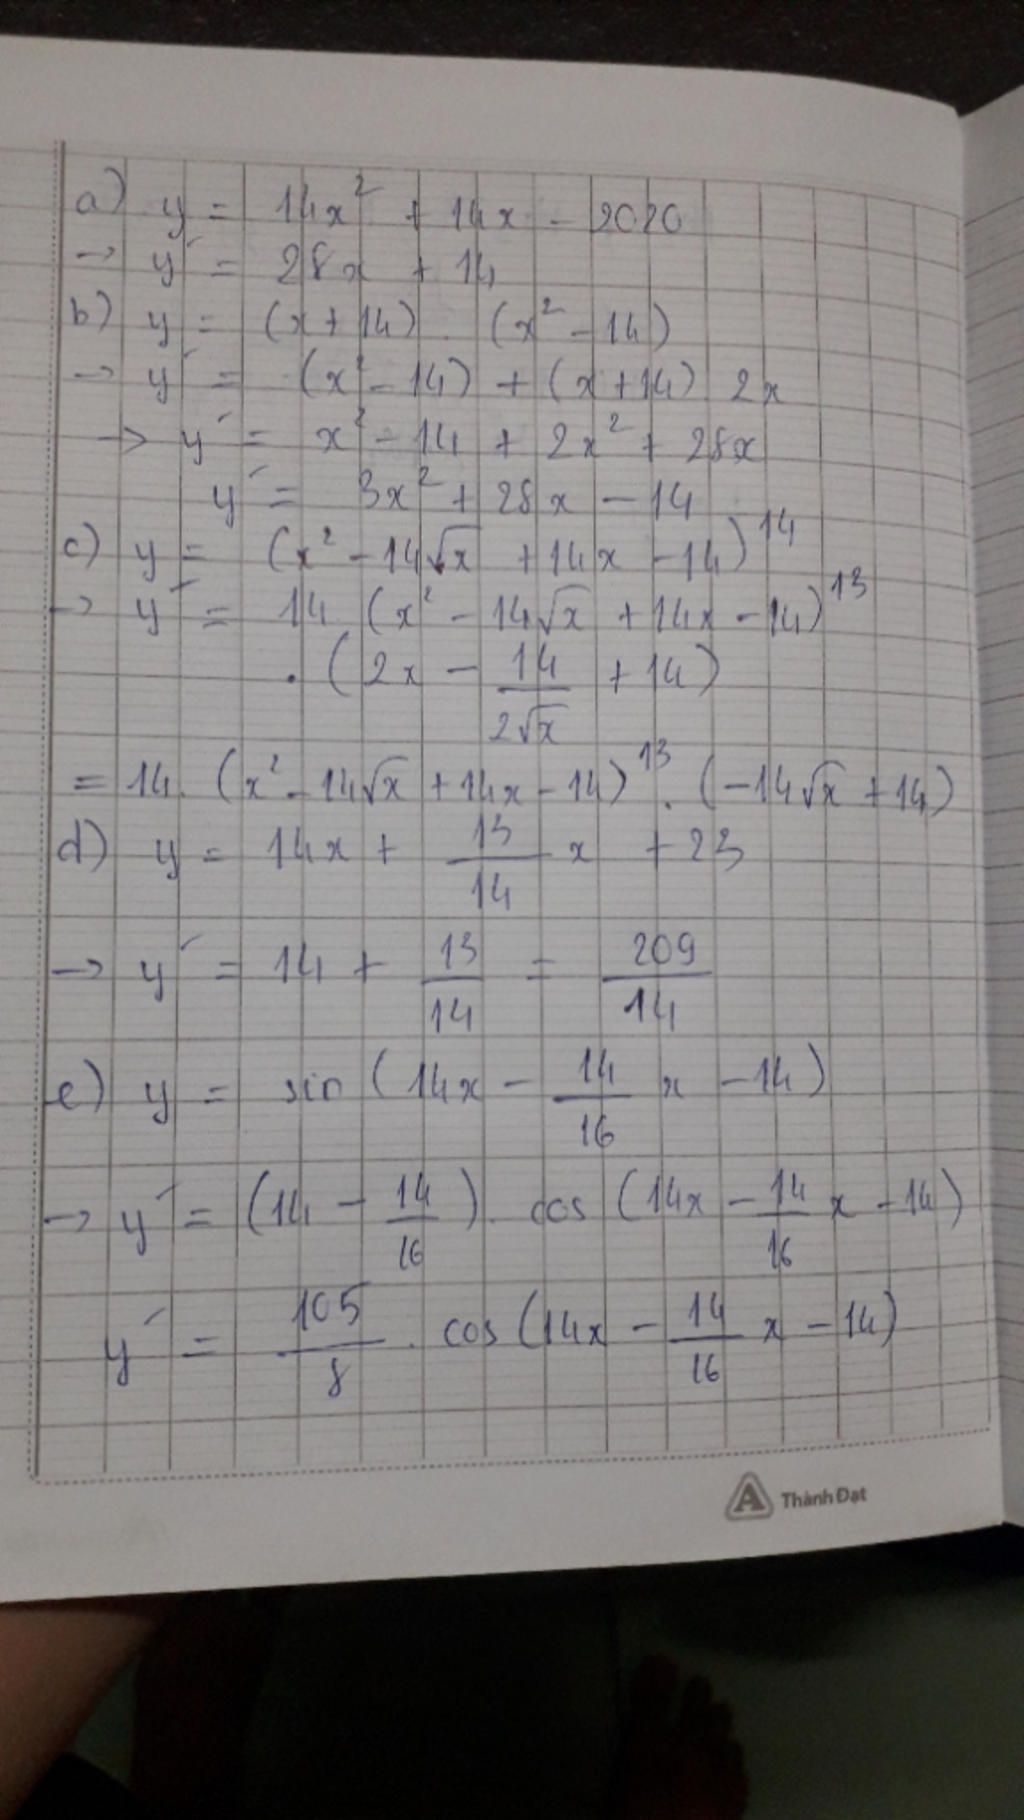 a) y = 14x² + 14x - 2020
→ y' = 28x + 14
b) y = (x + 14) . (x² - 14)
→ y' = (x² - 14) + (x + 14) 2x
→ y' = x² - 14 + 2x² + 28x
y' = 3x² + 28x - 14
c) y = (x² - 14√x + 14x - 14)¹⁴
→ y' = 14 (x² - 14√x + 14x - 14)¹³
. (2x - 14/(2√x) + 14)
= 14. (x² - 14√x + 14x - 14)¹³ . (-14√x + 14)
d) y = 14x + 13/14 x + 23
→ y' = 14 + 13/14 = 209/14
e) y = sin (14x - 14/16 x - 14)
→ y' = (14 - 14/16) . cos (14x - 14/16 x - 14)
y' = 105/8 . cos (14x - 14/16 x - 14)
Thành Đạt